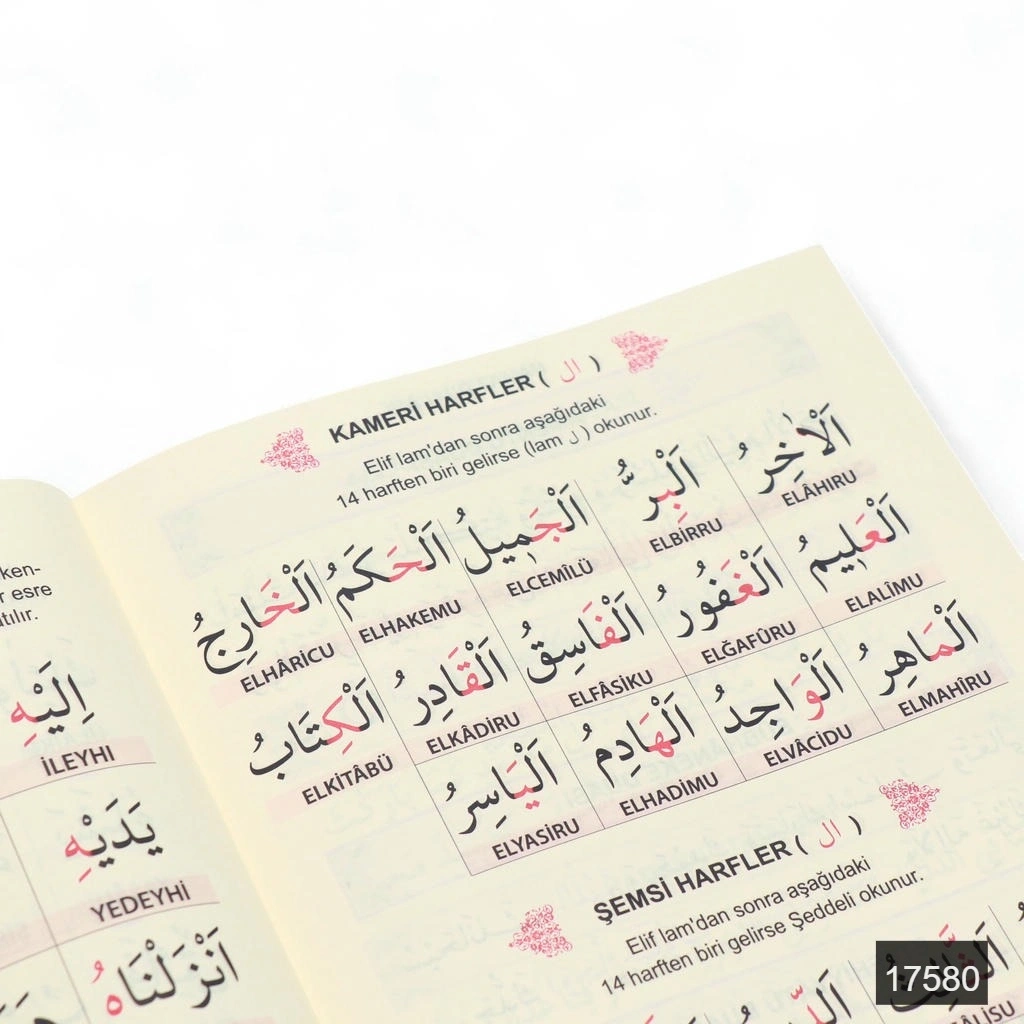 KAMERİ HARFLER ( ال )
Elif lam'dan sonra aşağıdaki
14 harften biri gelirse (lam ل ) okunur.
اَلْاٰخِرُ اَلْبِرُّ اَلْجَمٖيلُ اَلْحَكَمُ اَلْخَارِجُ
ELÂHIRU ELBİRRU ELCEMİLÜ ELHAKEMU ELHÂRİCU
اَلْعَلٖيمُ اَلْغَفُورُ اَلْفَاسِقُ اَلْقَادِرُ اَلْكِتَابُ
ELALÎMU ELĞAFÛRU ELFÂSIKU ELKÂDİRU ELKİTÂBÜ
اَلْمَاهِرُ اَلْوَاجِدُ اَلْهَادِمُ اَلْيَاسِرُ
ELMAHÎRU ELVÂCİDU ELHADİMU ELYASİRU
ŞEMSİ HARFLER ( ال )
Elif lam'dan sonra aşağıdaki
14 harften biri gelirse Şeddeli okunur.
esre
اِلَيْهِ
İLEYHI
يَدَيْهِ
YEDEYHİ
اَنْزَلْنَاهُ
17580